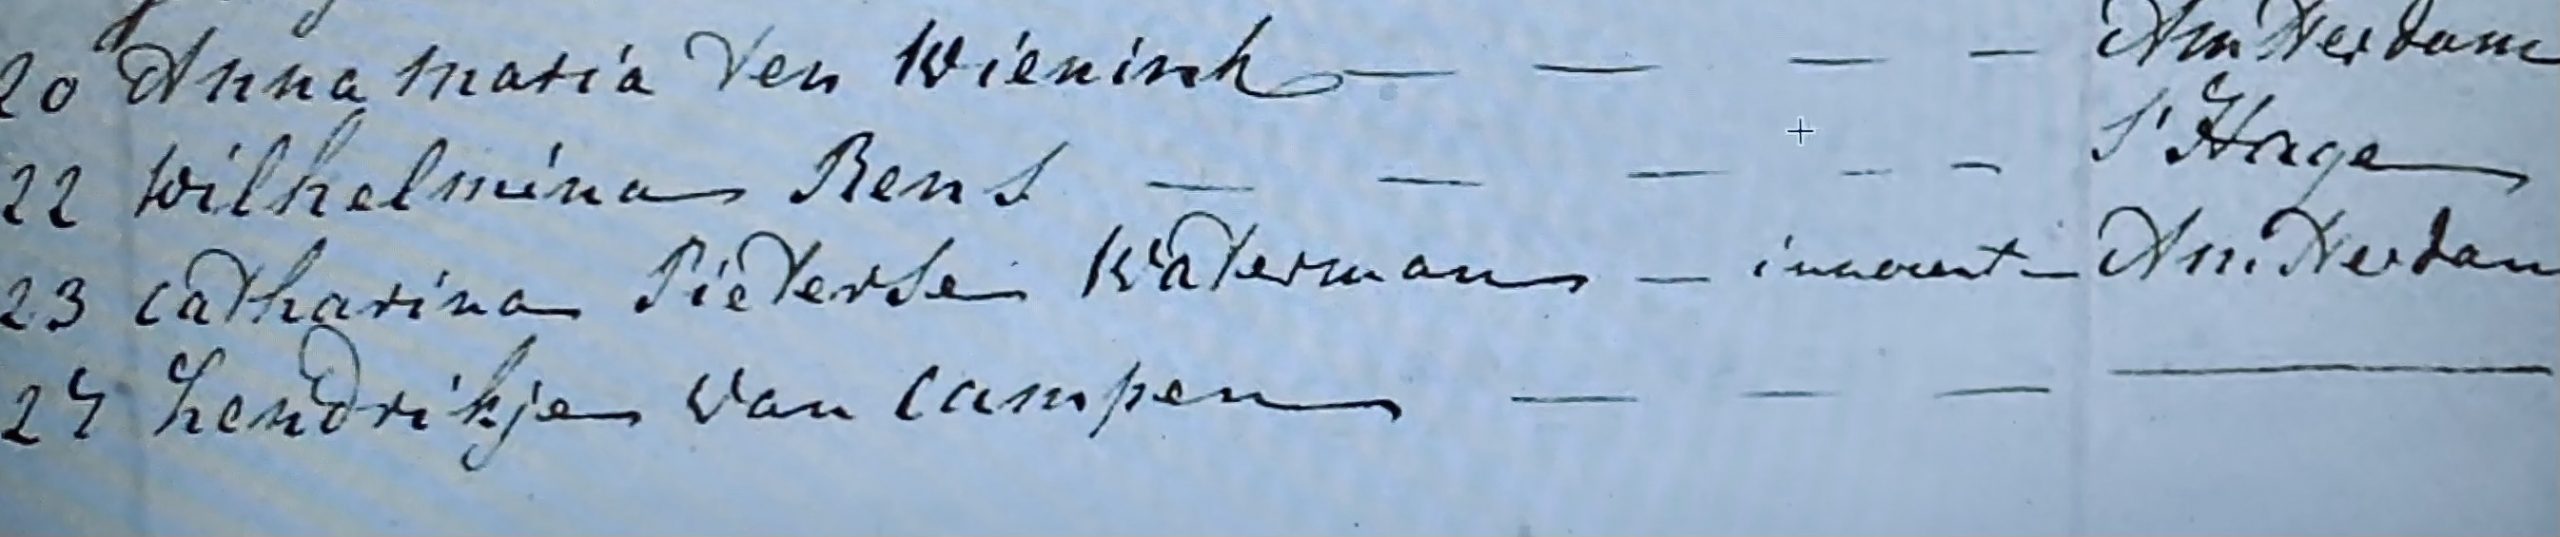 20 Anna maria Ven Wienink — — — — Amsterdam
22 Wilhelmina Rens — — — — — S'Hage
23 Catharina Pieterse Waterman — innocent — Amsterdam
24 hendrikje van Campen — — — —